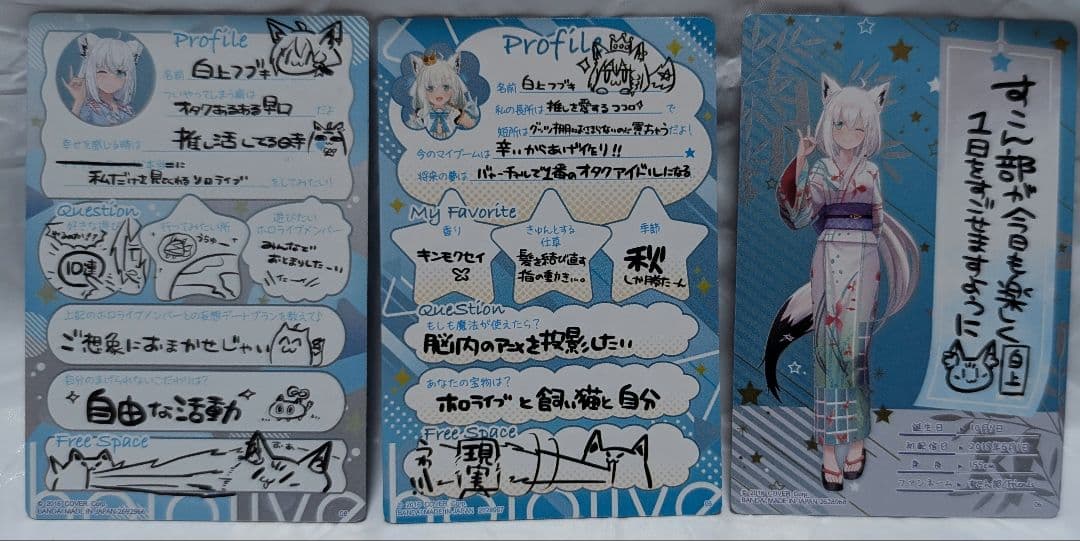 Profile
名前 白上フブキ
ついやってしまう癖は
オタクあるある早口 だよ
幸せを感じる時は 推し活してる時
私だけを見てくれるソロライブ をしてみたい!
Question
好きな遊び
10連
行ってみたい所
うちゅー
遊びたい
ホロライブメンバー
みんなで
おとまりしたーい
上記のホロライブメンバーとの妄想デートプランを教えて♪
ご想像におまかせじゃい
自分のまげられないこだわりは?
自由な活動
Free Space
© 2016 COVER Corp.
BANDAI/MADE IN JAPAN
hololive
Profile
名前 白上フブキ
私の長所は 推しを愛するココロ! で
短所は グッズ棚におさまらないのに買っちゃう だよ!
今のマイブームは 辛いからあげ作り!!
将来の夢は バーチャルで1番のオタクアイドルになる
My Favorite
香り
キンモクセイ
きゅんとする
仕草
髪を結び直す
指の動き…。
季節
秋
しか勝たーん
Question
もしも魔法が使えたら?
脳内のアニメを投影したい
あなたの宝物は?
ホロライブと飼い猫と自分
Free Space
うわー
現実
© 2016 COVER Corp.
BANDAI/MADE IN JAPAN
hololive
すこん部が今日も楽しく
1日をすごせますように
白上
誕生日 10月5日
初配信日 2018年6月1日
身長 155cm
ファンネーム
© 2016 COVER Corp.
BANDAI/MADE IN JAPAN 2628968
06